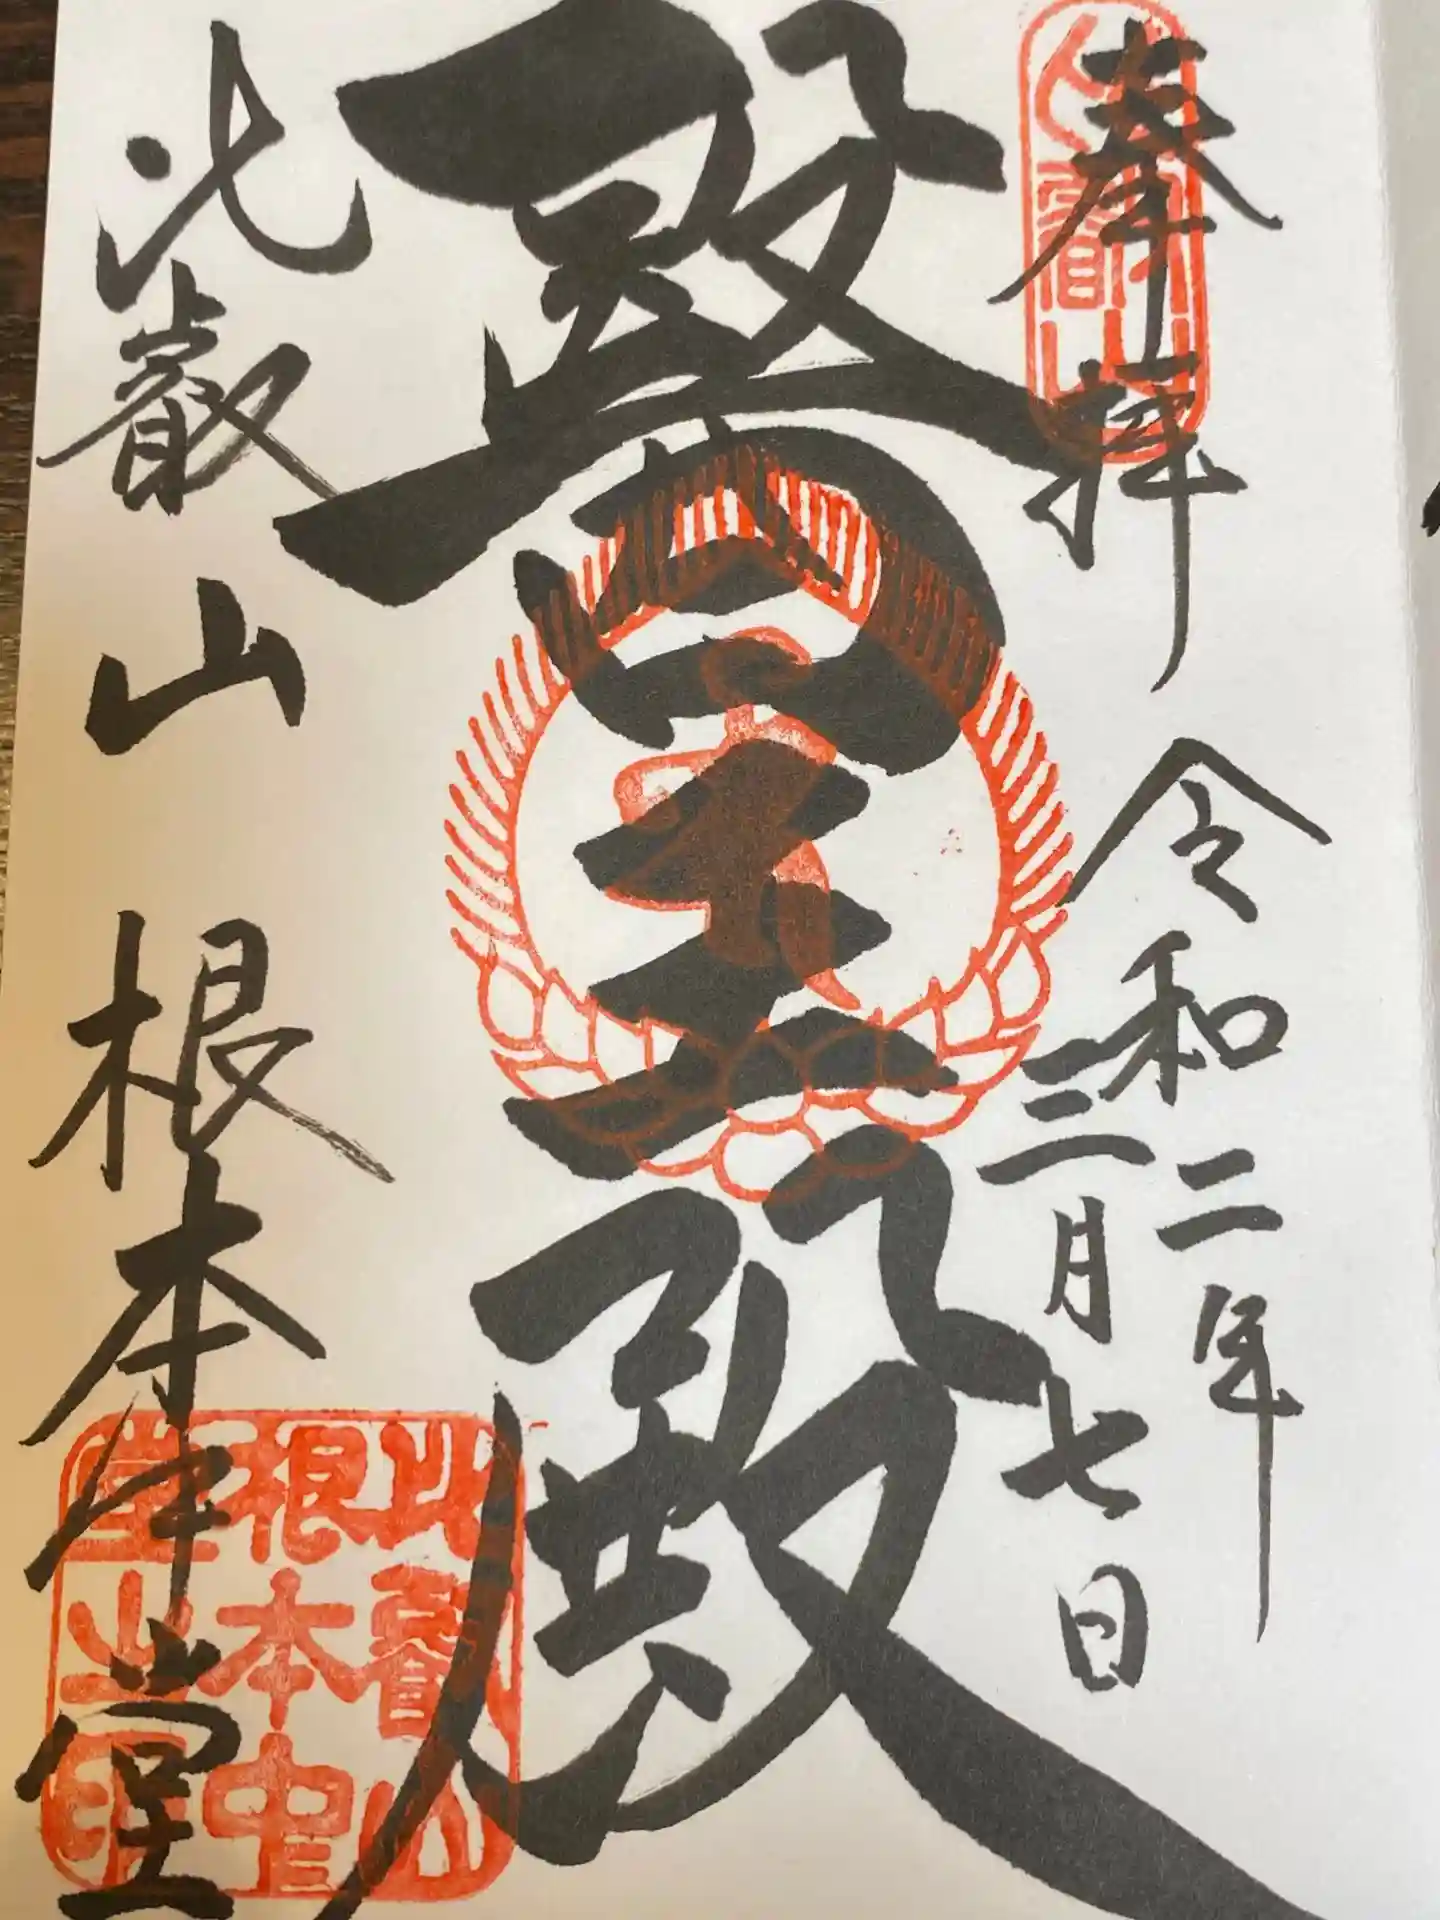 奉拝
令和二年
三月七日
醫王殿
比叡山
根本中堂
比叡山
根本中
堂之印